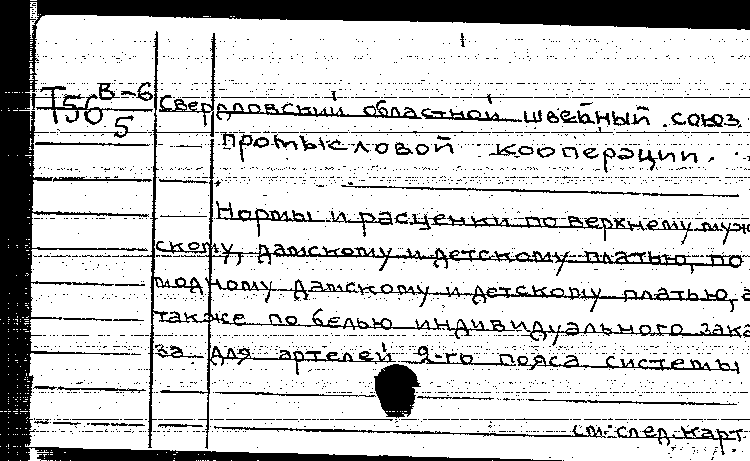 Т56 В-6
5
Свердловский областной швейный союз
промысловой кооперации.
Нормы и расценки по верхнему муж
скому, дамскому и детскому платью, по
модному дамскому и детскому платью, а
также по белью индивидуального зака
за для артелей 2-го пояса системы
см. след. карт